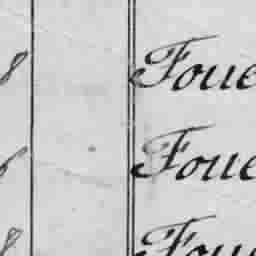 8 Foue
6 Foue
8 Foue